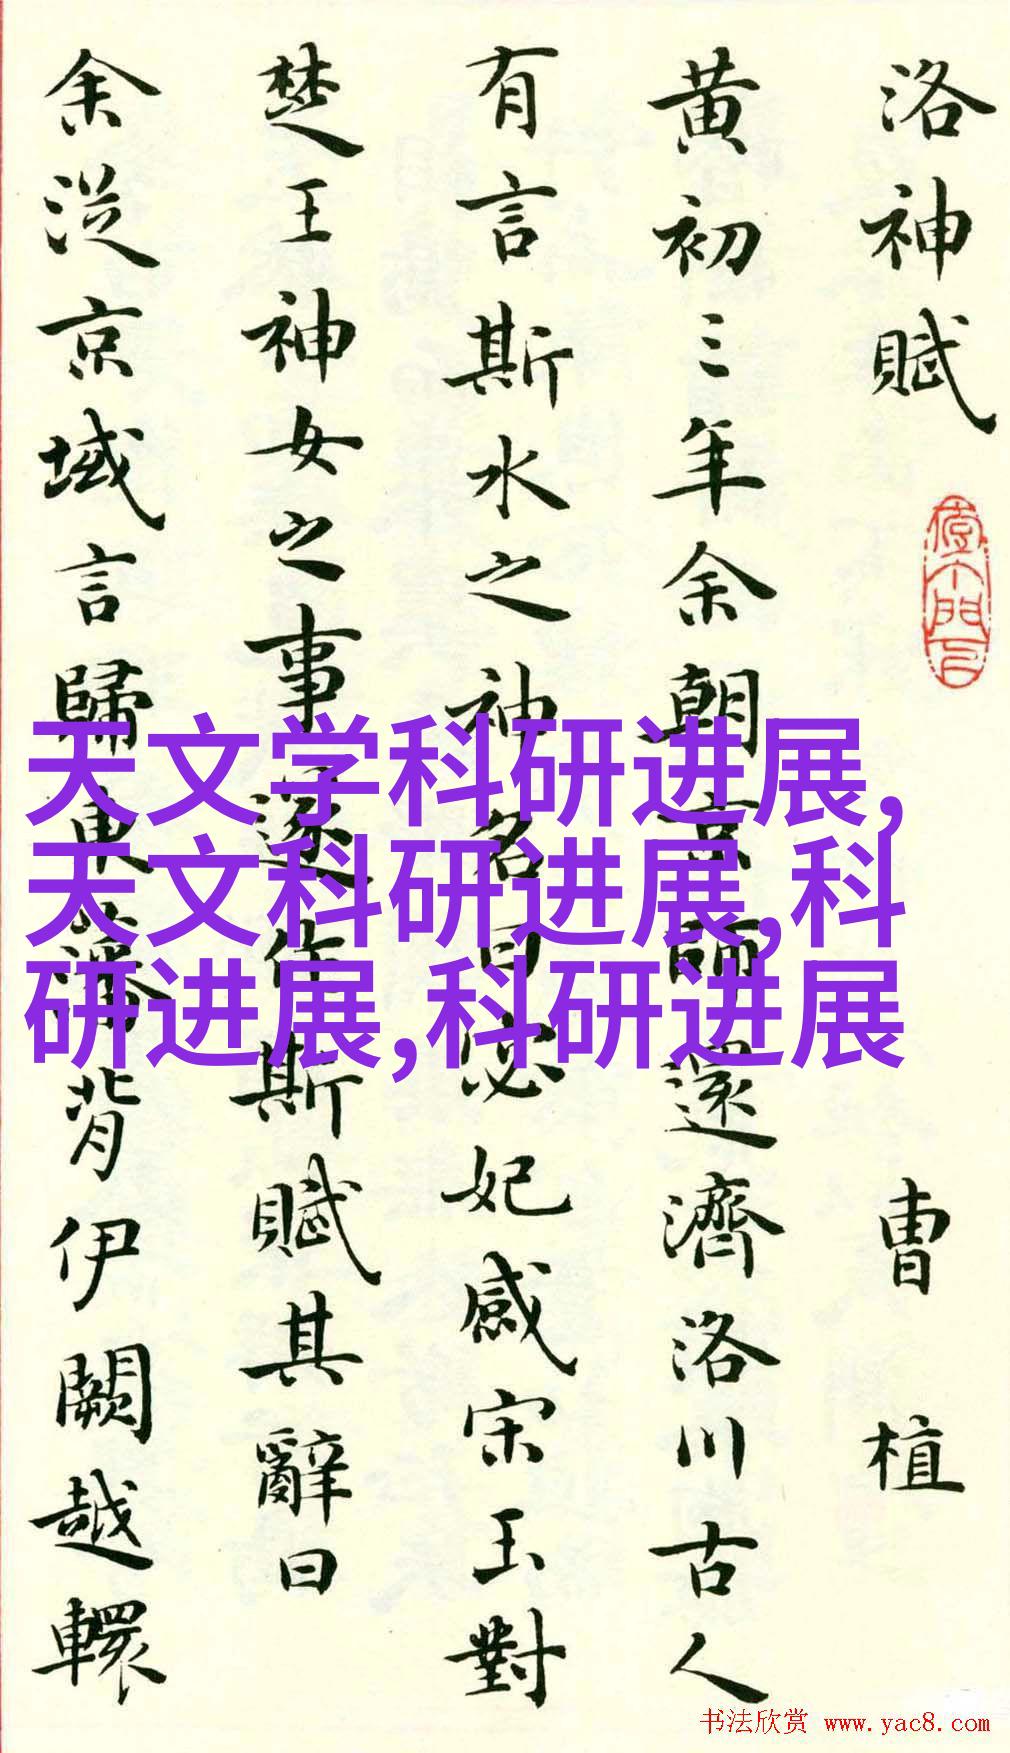 洛神賦
曹植
黄初三年余朝京師還濟洛川古人
有言斯水之神名曰宓妃感宋玉對
楚王神女之事遂作斯賦其辭曰
余從京域言歸東藩背伊闕越轘
天文学科研进展,
天文科研进展,科
研进展,科研进展
书法欣赏 www.yac8.com